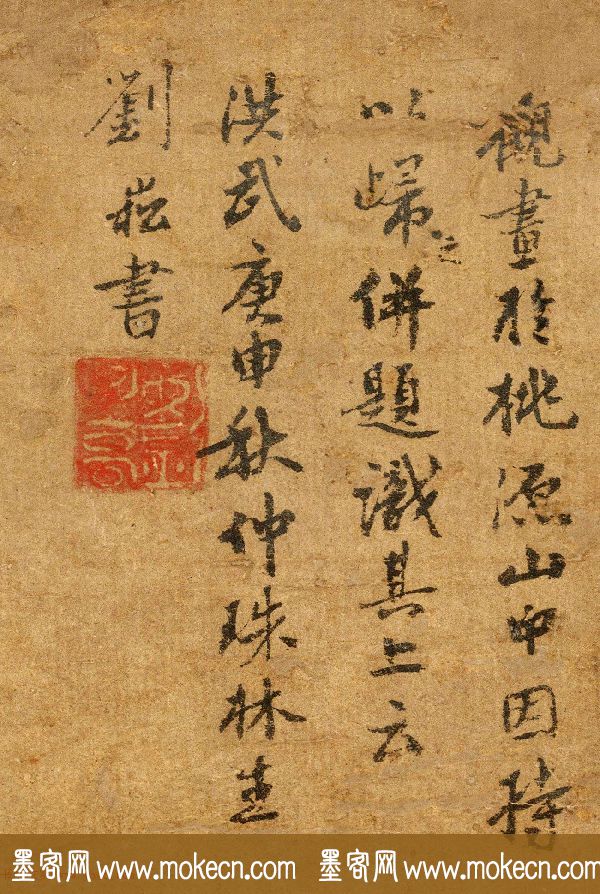 觀畫於桃源山中因持
以歸之併題識其上云
洪武庚申秋仲珠林生
劉崧書
墨客网 www.mokecn.com 墨客网 www.mokecn.com